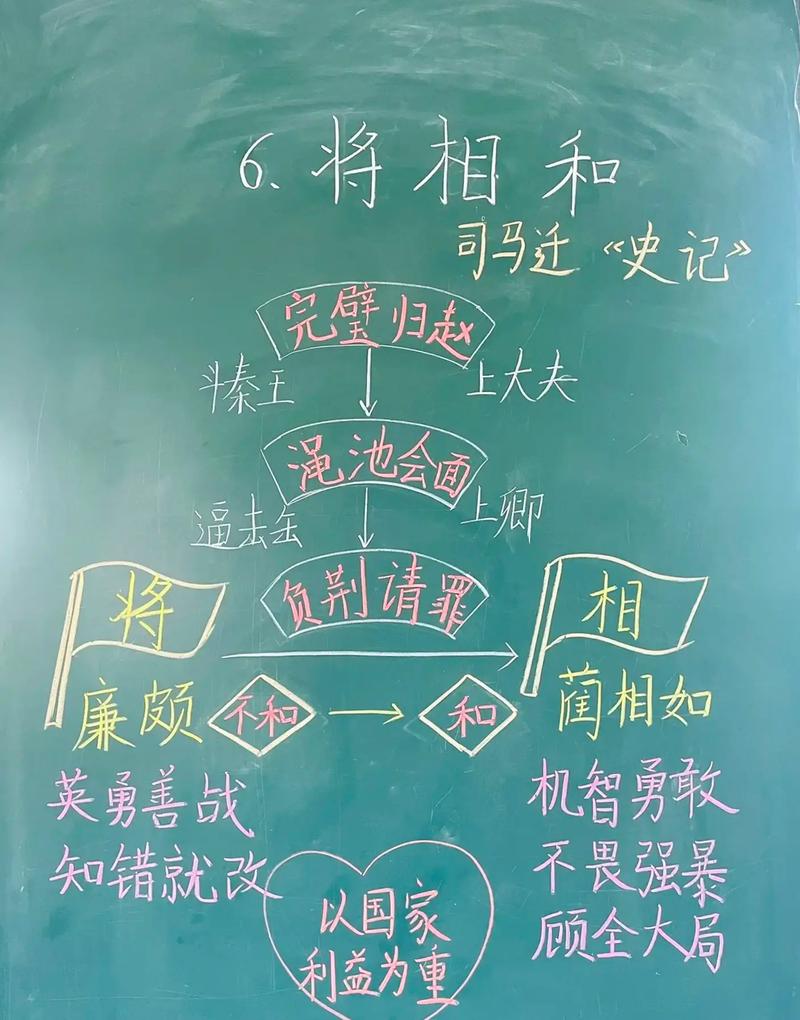 6. 将相和
司马迁《史记》
完璧归赵
斗秦王
上大夫
渑池会面
逼击缶
上卿
负荆请罪
将
相
廉颇
不和
和
蔺相如
英勇善战
知错就改
机智勇敢
不畏强暴
顾全大局
以国家
利益为重